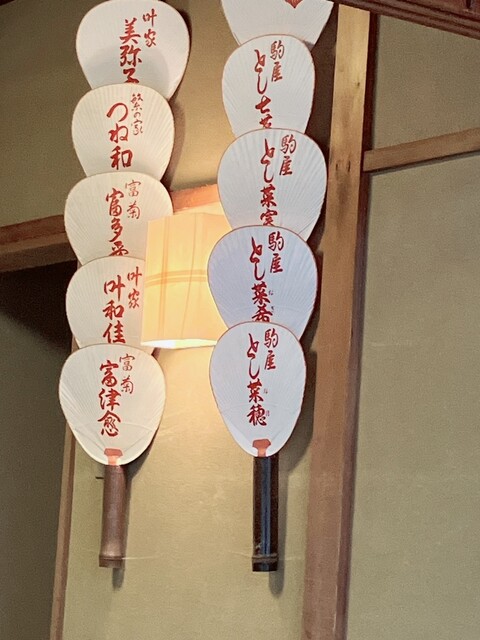 叶家
美弥子
繁の家
つね和
富菊
富多
叶家
叶和佳
富菊
富津愈
駒屋
とし七
駒屋
とし菜実
駒屋
とし菜希
駒屋
とし菜穂